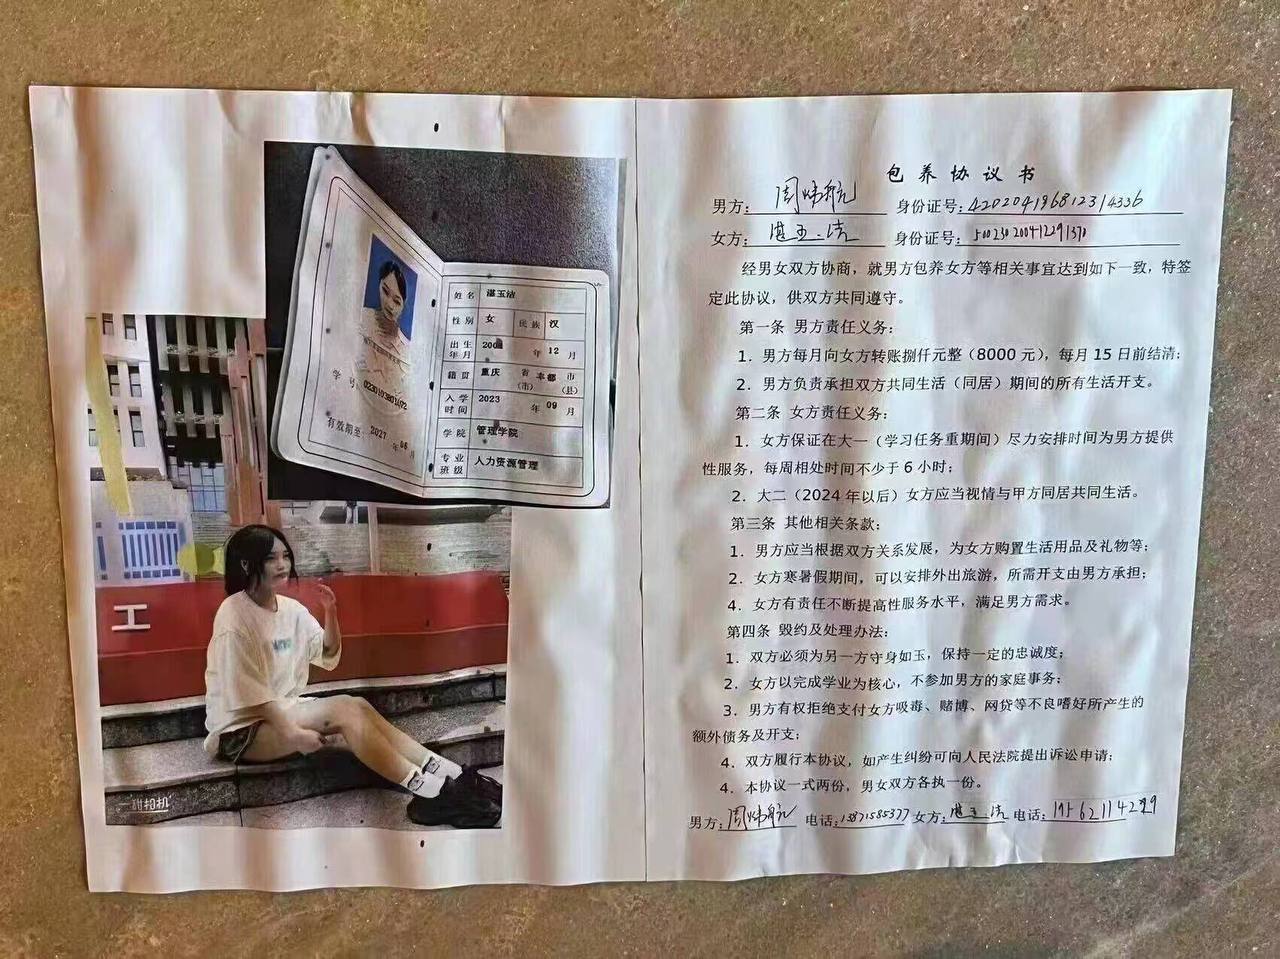 包养协议书
男方： 身份证号：
女方： 身份证号：
经男女双方协商，就男方包养女方等相关事宜达到如下一致，特签
定此协议，供双方共同遵守。
第一条 男方责任义务：
1．男方每月向女方转账捌仟元整（8000 元），每月 15 日前结清；
2．男方负责承担双方共同生活（同居）期间的所有生活开支。
第二条 女方责任义务：
1．女方保证在大一（学习任务重期间）尽力安排时间为男方提供
性服务，每周相处时间不少于 6 小时；
2．大二（2024 年以后）女方应当视情与甲方同居共同生活。
第三条 其他相关条款：
1．男方应当根据双方关系发展，为女方购置生活用品及礼物等；
2．女方寒暑假期间，可以安排外出旅游，所需开支由男方承担；
4．女方有责任不断提高性服务水平，满足男方需求。
第四条 毁约及处理办法：
1．双方必须为另一方守身如玉，保持一定的忠诚度；
2．女方以完成学业为核心，不参加男方的家庭事务；
3．男方有权拒绝支付女方吸毒、赌博、网贷等不良嗜好所产生的
额外债务及开支；
4．双方履行本协议，如产生纠纷可向人民法院提出诉讼申请；
4．本协议一式两份，男女双方各执一份。
男方： 电话： 女方： 电话：
姓名
性别 女 民族 汉
出生年月 年 月
籍贯 省（市） 市（县）
入学时间 年 月
学院
专业班级
学号
有效期至 年 月
工